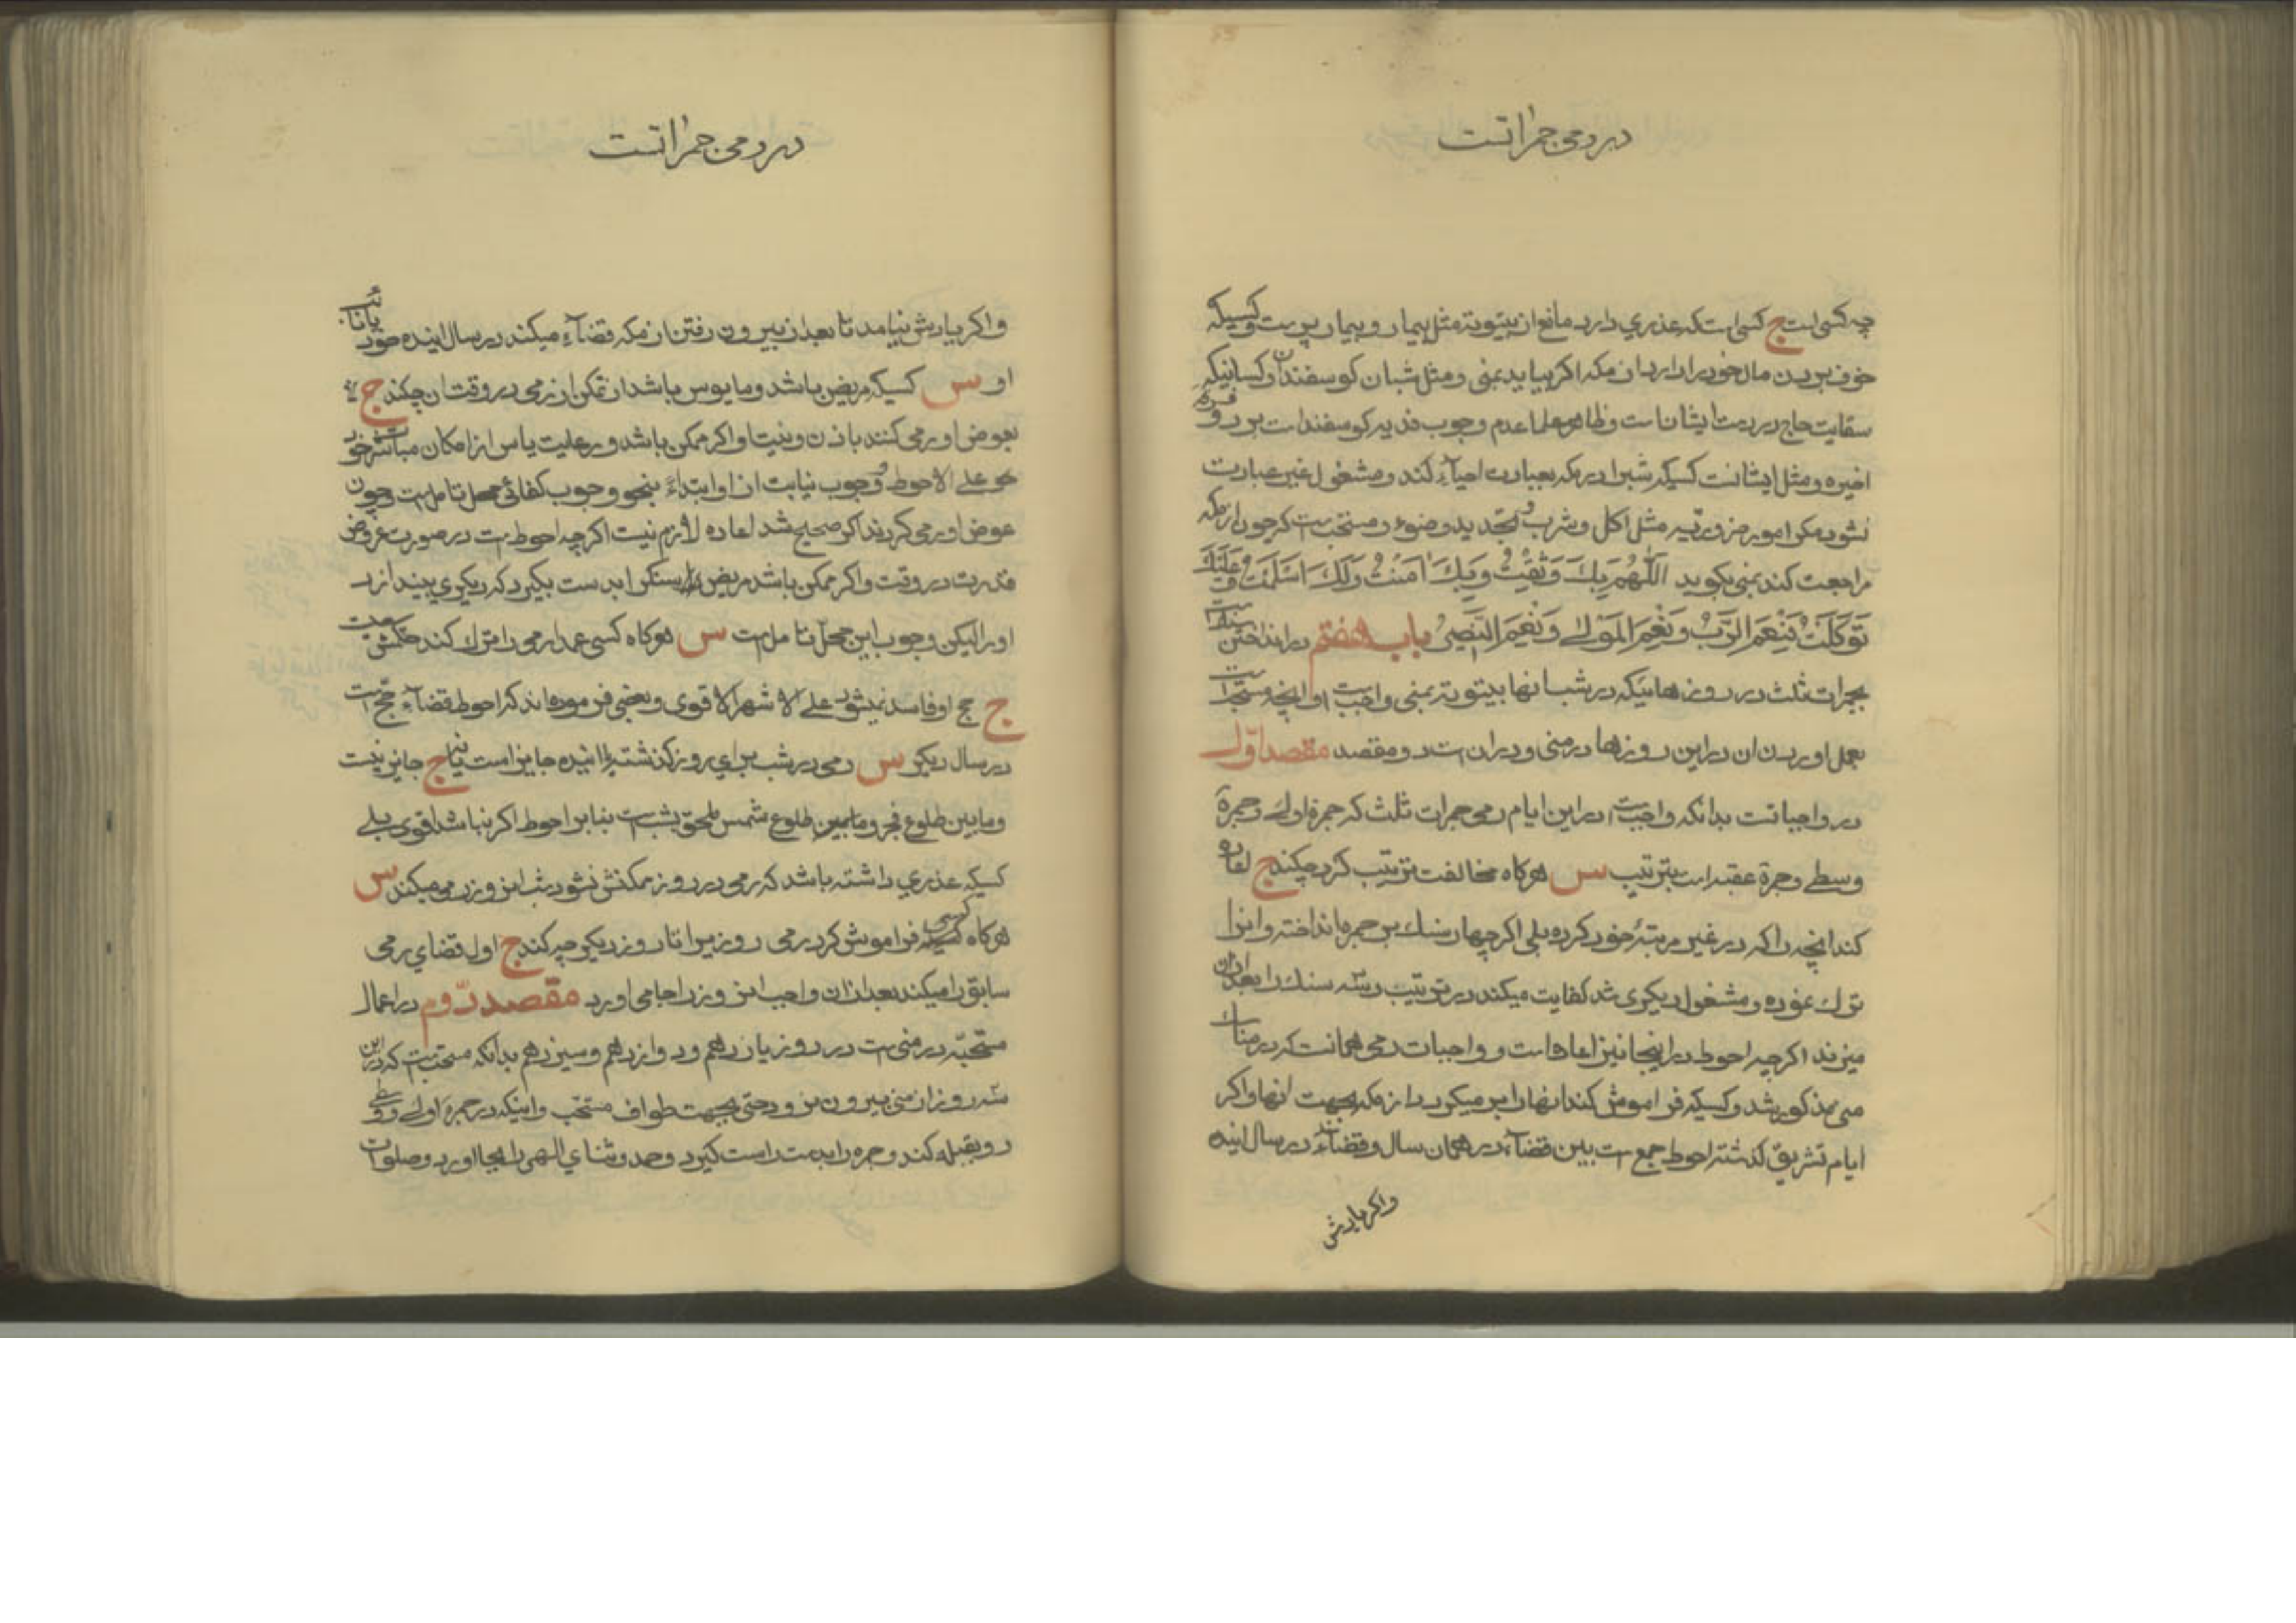 در رمی جمراتست
چه کسی است ج کسی است که عذری دارد مانع از بیتوته مثل بیمار و بیمار پرست و کسیکه
خوف بردن مال خود را دارد از مکه اکر بیاید بمنی و مثل شبان کوسفندان و کسانیکه
سقایت حاج در دست ایشانست و ظاهر علما عدم وجوب فدیه کوسفند است بر دو فرقه
اخیره و مثل ایشانست کسیکه شبرا در مکه بعبادت احیآء کند و مشغول غیر عبادت
نشود مکر امور ضروریه مثل اکل و شرب و تجدید وضوء و مستحبست که چون از مکه
مراجعت کند بمنی بکوید اَللّهُمَ بِكَ وَثِقْتُ وَبِكَ امَنْتُ وَلَكَ اَسْلَمْتُ وَعَلَيْكَ
تَوَكَّلْتُ فَنِعْمَ الرَّبُّ وَنِعْمَ المَوْلی وَنِعْمَ النَّصِیْرُ باب هفتم در انداختن سنك است
بجمرات ثلث در روزهائیکه در شب انها بیتوته بمنی واجبست و انچه مستحب است
بعمل اوردن ان در این روزها در منی و در ان است دو مقصد مقصد اوّل
در واجباتست بدانکه واجبست در این ایام رمی جمرات ثلث که جمرة اولی و جمرة
وسطی و جمرة عقبه است بترتیب س هرکاه مخالفت ترتیب کرد چکند ج اعاده
کند انچه را که در غیر مرتبهٔ خود کرده بلی اکر چهار سنك بر جمره انداخته و انرا
ترك نموده و مشغول دیکری شد کفایت میکند در ترتیب و سه سنك را بعد از ان
میزند اکرچه احوط در اینجا نیز اعاده است و واجبات رمی همانست که در مناسك
منی مذکور شد و کسیکه فراموش کند انها را بر میکردد از مکه بجهت انها و اکر
ایام تشریق کذشته احوط جمع است بین قضآء در همان سال و قضآء در سال اینده
و اکر یادش
در رمی جمراتست
و اکر یادش نیامد تا بعد از بیرون رفتن از مکه قضآء میکند در سال اینده خود یا نائب
او س کسیکه مریض باشد و مایوس باشد از تمکن از رمی در وقت ان چکند ج
بعوض او رمی کنند باذن و نیت او اکر ممکن باشد و رعایت یاس از امکان مباشرت خود
علی الاحوط و وجوب نیابت از او ابتداءً بنحو وجوب کفائی محل تامل است و چون
عوض او رمی کردند اکر صحیح شد اعاده لازم نیست اکرچه احوط است در صورت عروض
قدرت در وقت و اکر ممکن باشد مریض را سنك را بدست بکیرد که دیکری بیندازد
او را لیکن وجوب این محل تامل است س هرکاه کسی عمدا رمی را ترك کند حکمش چیست
ج حج او فاسد نمیشود علی الاشهر الاقوی و بعضی فرموده اند که احوط قضآء حج است
در سال دیکر س رمی در شب برای روز کذشته یا اینده جایز است یا نه ج جایز نیست
و مابین طلوع فجر و مابین طلوع شمس ملحق بشب است بنا بر احوط اکر نباشد اقوی بلی
کسیکه عذری داشته باشد که رمی در روز ممکنش نشود شب انروز رمی میکند س
هرکاه کسی فراموش کرد رمی روزیرا تا روز دیکر چه کند ج اول قضای رمی
سابق را میکند بعد از ان واجب انروز را بجا می اورد مقصد دوّم در اعمال
مستحبّه در منی است در روز یازدهم و دوازدهم و سیزدهم بدانکه مستحبست که در این
سه روز از منی بیرون نرود حتی بجهت طواف مستحب و اینکه در جمرة اولی و وسطی
رو بقبله کند و جمره را بدست راست کیرد و حمد و ثنای الهی را بجا اورد و صلوات